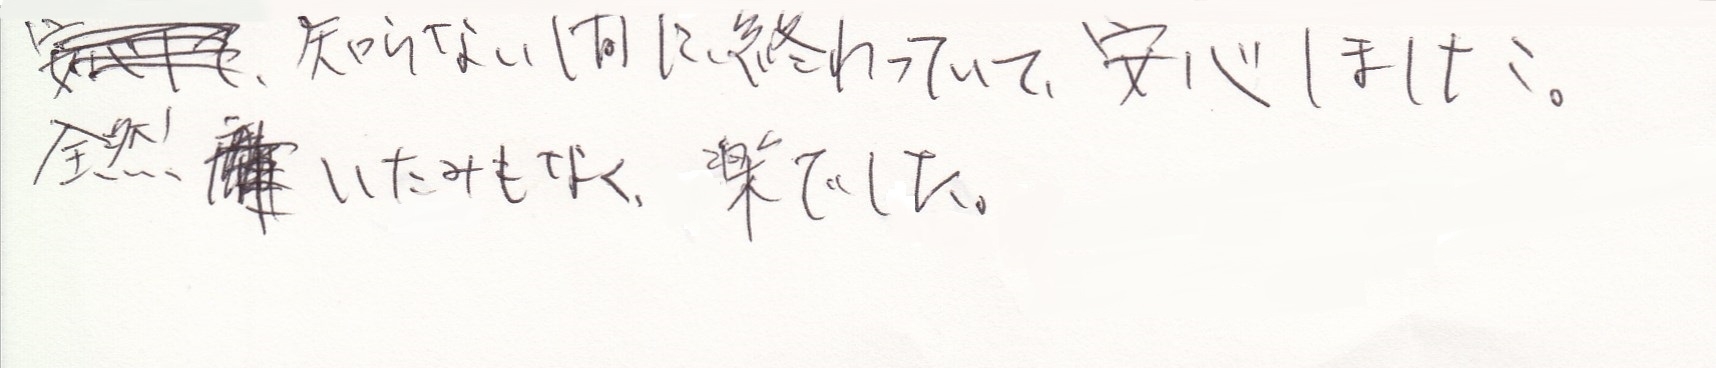 知らない間に終わっていて、安心しました。
全然いたみもなく、楽でした。